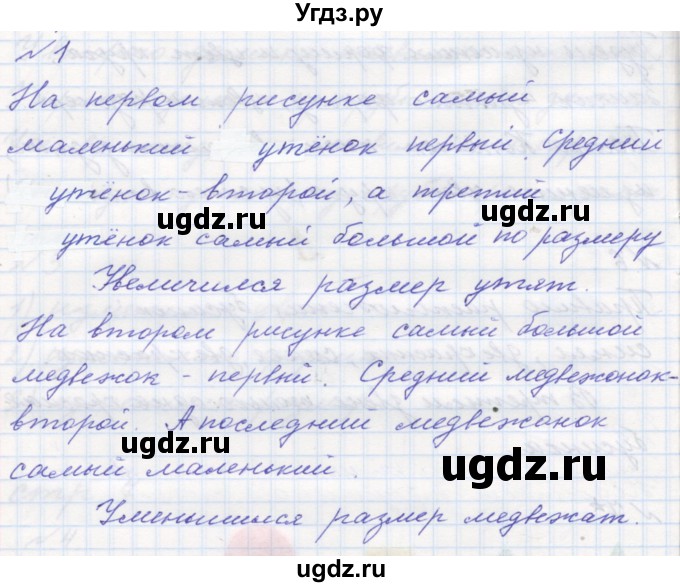 Угдз.ру
№1
На первом рисунке самый
маленький утёнок первый. Средний
утёнок - второй, а третий
ugdz.ru ugdz.ru
утёнок самый большой по размеру
Увеличился размер утят.
ugdz.ru
На втором рисунке самый большой
медвежок - первый. Средний медвежонок-
второй. А последний медвежонок
ugdz.ru ugdz.ru
самый маленький.
Уменьшился размер медвежат.
ugdz.ru ugdz.ru